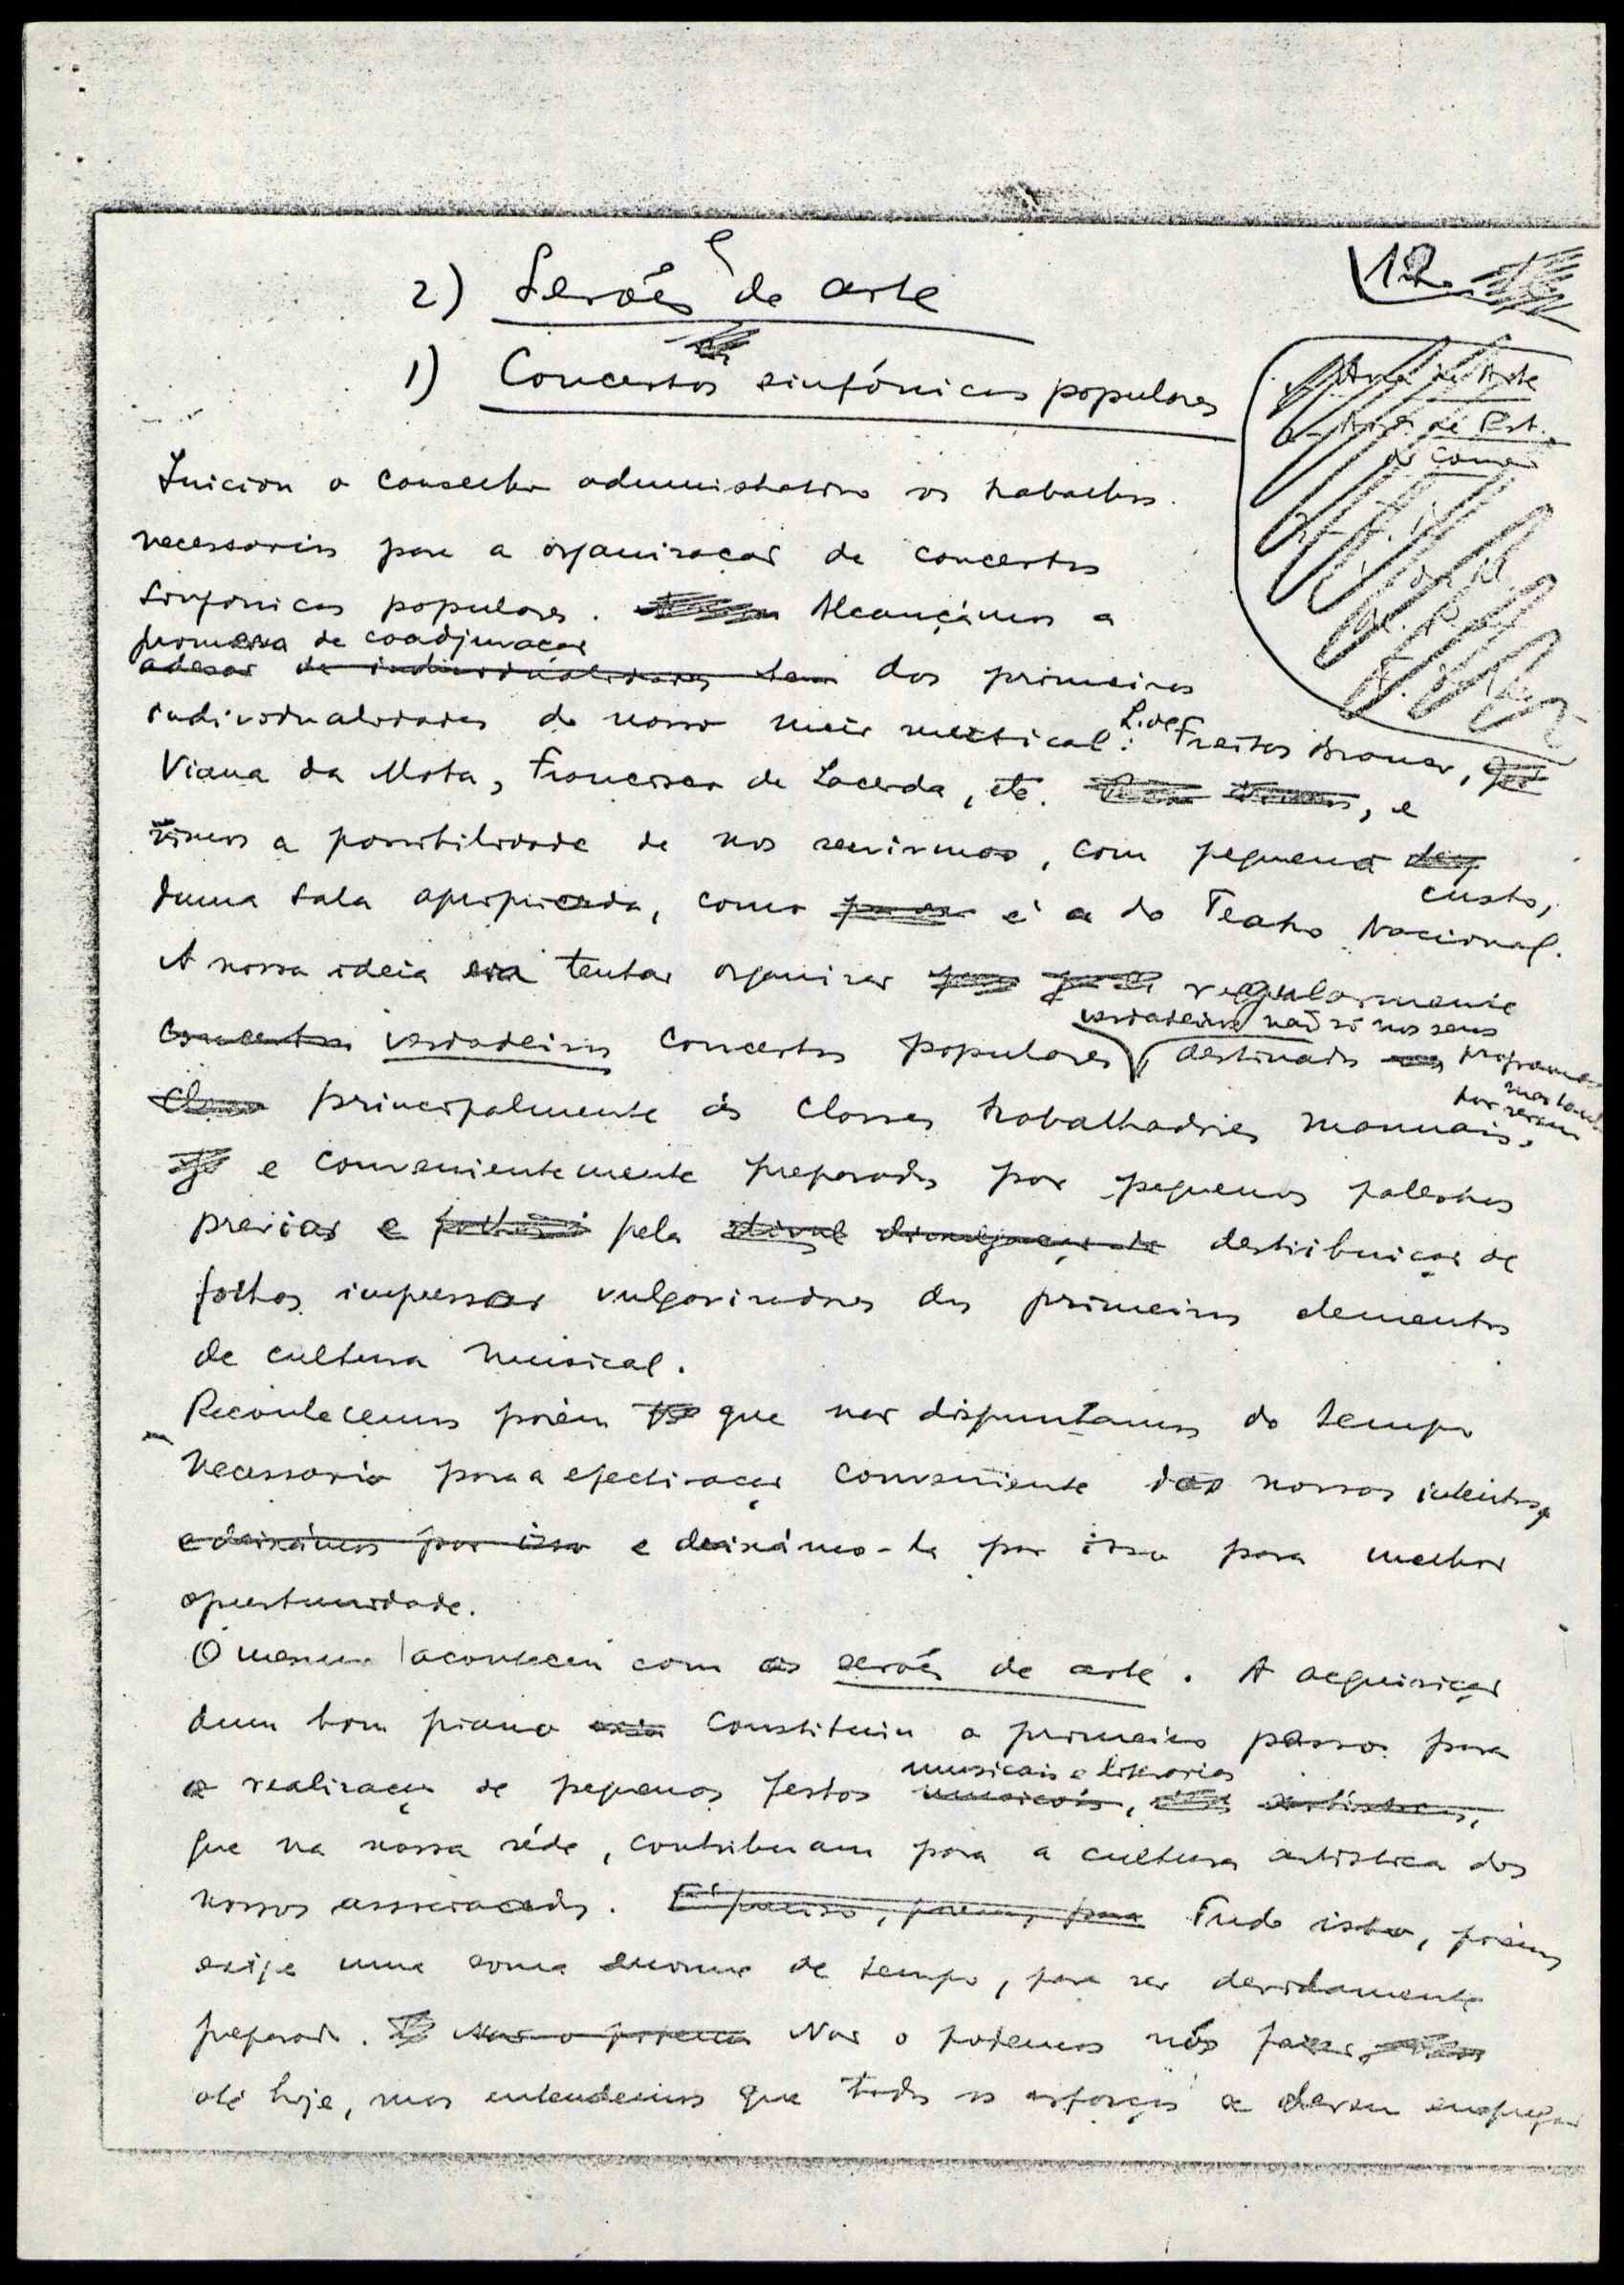 12
2) Serões de arte
e
1) Concertos sinfónicos populares
Iniciou o conselho administrativo os trabalhos
necessarios para a organização de concertos
sinfonicos populares. Alcançámos a
promessa de coadjuvação
adesão de individualidades dos primeiros
individualidades do nosso meio musical: L. de Freitas Branco,
Viana da Mota, Francisco de Lacerda, etc. , e
vimos a possibilidade de nos servirmos, com pequeno
custo,
duma sala apropriada, como é a do Teatro Nacional.
A nossa ideia era tentar organizar regularmente
verdadeiros não só nos seus
concertos verdadeiros concertos populares destinados programas
mas
por serem
principalmente ás classes trabalhadores manuais,
e convenientemente preparados por pequenas palestras
previas e pela divulgação de destribuição de
folhas impressas vulgarizadoras dos primeiros elementos
de cultura musical.
Reconhecemos porém que não dispunhamos do tempo
necessario para a efectivação conveniente dos nossos intentos,
e deixámos por isso e deixámo-la por isso para melhor
oportunidade.
O mesmo aconteceu com os serões de arte. A aquisição
dum bom piano constituiu o primeiro passo para
a realização de pequenas festas musicais e literarias
musicais, artisticas,
que na nossa séde, contribuam para a cultura artistica dos
nossos associados. É preciso, porém, para Tudo isto, porém,
exige uma soma enorme de tempo, para ser devidamente
preparado. Não o podemos Não o podemos nós fazer,
até hoje, mas entendemos que todos os esforços se devem empregar